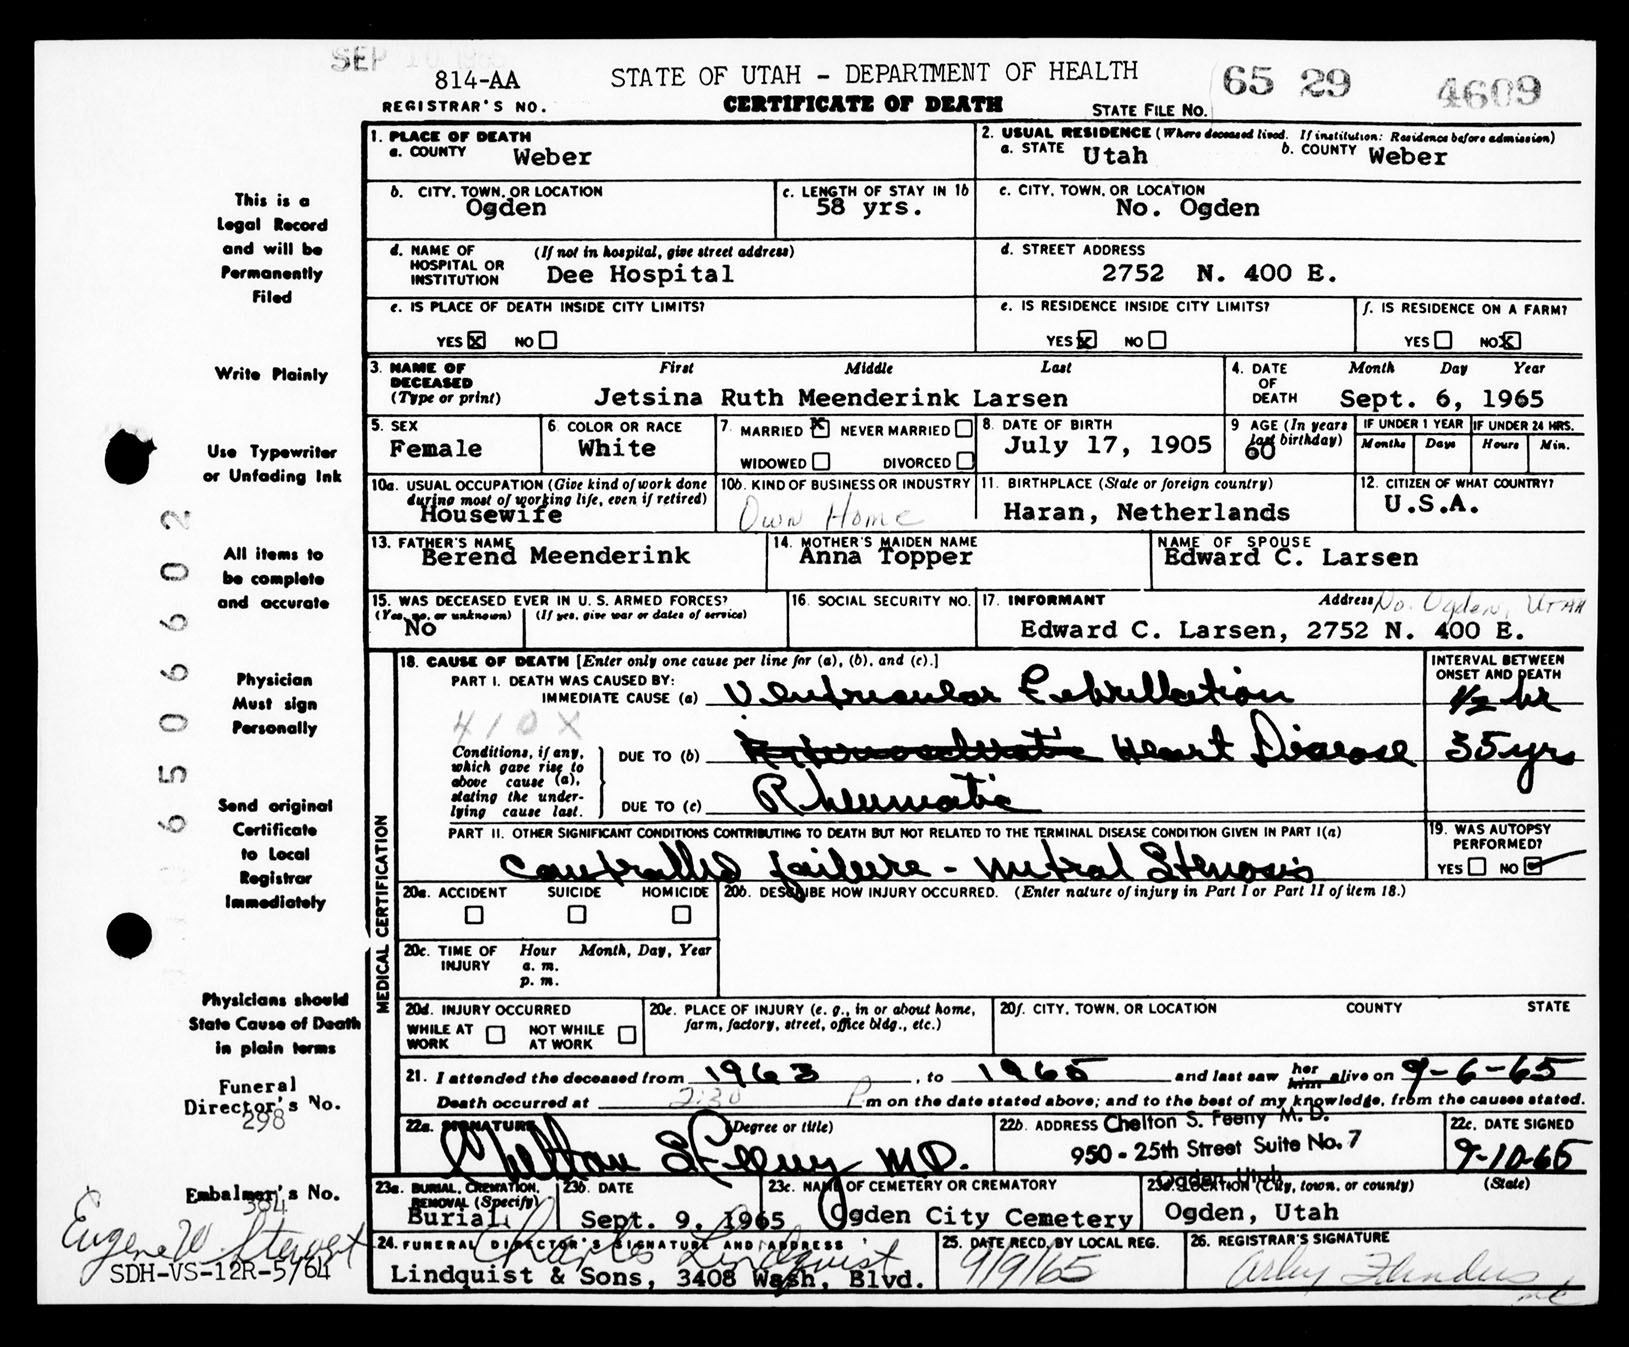 SEP 10
814-AA
STATE OF UTAH - DEPARTMENT OF HEALTH
65 29 4609
REGISTRAR'S NO.
CERTIFICATE OF DEATH
STATE FILE NO.
1. PLACE OF DEATH
a. COUNTY Weber
2. USUAL RESIDENCE (Where deceased lived. If institution: Residence before admission)
a. STATE Utah b. COUNTY Weber
b. CITY, TOWN, OR LOCATION
Ogden
c. LENGTH OF STAY IN 1b
58 yrs.
c. CITY, TOWN, OR LOCATION
No. Ogden
d. NAME OF HOSPITAL OR INSTITUTION (If not in hospital, give street address)
Dee Hospital
d. STREET ADDRESS
2752 N. 400 E.
e. IS PLACE OF DEATH INSIDE CITY LIMITS?
YES X NO
e. IS RESIDENCE INSIDE CITY LIMITS?
YES X NO
f. IS RESIDENCE ON A FARM?
YES NO X
3. NAME OF DECEASED (Type or print) First Middle Last
Jetsina Ruth Meenderink Larsen
4. DATE OF DEATH Month Day Year
Sept. 6, 1965
5. SEX
Female
6. COLOR OR RACE
White
7. MARRIED X NEVER MARRIED
WIDOWED DIVORCED
8. DATE OF BIRTH
July 17, 1905
9 AGE (In years last birthday)
60
IF UNDER 1 YEAR IF UNDER 24 HRS.
Months Days Hours Min.
10a. USUAL OCCUPATION (Give kind of work done during most of working life, even if retired)
Housewife
10b. KIND OF BUSINESS OR INDUSTRY
Own Home
11. BIRTHPLACE (State or foreign country)
Haran, Netherlands
12. CITIZEN OF WHAT COUNTRY?
U.S.A.
13. FATHER'S NAME
Berend Meenderink
14. MOTHER'S MAIDEN NAME
Anna Topper
NAME OF SPOUSE
Edward C. Larsen
15. WAS DECEASED EVER IN U. S. ARMED FORCES?
(Yes, no, or unknown) (If yes, give war or dates of service)
No
16. SOCIAL SECURITY NO.
17. INFORMANT Address No. Ogden, Utah
Edward C. Larsen, 2752 N. 400 E.
MEDICAL CERTIFICATION
18. CAUSE OF DEATH [Enter only one cause per line for (a), (b), and (c).]
PART I. DEATH WAS CAUSED BY:
IMMEDIATE CAUSE (a) Ventricular Febrillation
INTERVAL BETWEEN ONSET AND DEATH
1/2 hr
410X
Conditions, if any, which gave rise to above cause (a), stating the underlying cause last.
DUE TO (b) Heart Disease 35 yrs
DUE TO (c) Rheumatic
PART II. OTHER SIGNIFICANT CONDITIONS CONTRIBUTING TO DEATH BUT NOT RELATED TO THE TERMINAL DISEASE CONDITION GIVEN IN PART I(a)
Controlled failure - Mitral Stenosis
19. WAS AUTOPSY PERFORMED?
YES NO
20a. ACCIDENT SUICIDE HOMICIDE
20b. DESCRIBE HOW INJURY OCCURRED. (Enter nature of injury in Part I or Part II of item 18.)
20c. TIME OF INJURY Hour Month, Day, Year
a. m.
p. m.
20d. INJURY OCCURRED
WHILE AT WORK NOT WHILE AT WORK
20e. PLACE OF INJURY (e. g., in or about home, farm, factory, street, office bldg., etc.)
20f. CITY, TOWN, OR LOCATION COUNTY STATE
21. I attended the deceased from 1963, to 1965 and last saw her him alive on 9-6-65
Death occurred at 2:30 P m on the date stated above; and to the best of my knowledge, from the causes stated.
22a. SIGNATURE (Degree or title)
Chelton S Feeny M.D.
22b. ADDRESS Chelton S. Feeny M. D.
950 - 25th Street Suite No. 7
Ogden, Utah
22c. DATE SIGNED
9-10-65
23a. BURIAL, CREMATION, REMOVAL (Specify)
Burial
23b. DATE
Sept. 9, 1965
23c. NAME OF CEMETERY OR CREMATORY
Ogden City Cemetery
23d. LOCATION (City, town, or county) (State)
Ogden, Utah
24. FUNERAL DIRECTOR'S SIGNATURE AND ADDRESS
Charles Lindquist
Lindquist & Sons, 3408 Wash, Blvd.
25. DATE RECD. BY LOCAL REG.
9/9/65
26. REGISTRAR'S SIGNATURE
This is a
Legal Record
and will be
Permanently
Filed
Write Plainly
Use Typewriter
or Unfading Ink
All items to
be complete
and accurate
Physician
Must sign
Personally
Send original
Certificate
to Local
Registrar
Immediately
Physicians should
State Cause of Death
in plain terms
Funeral
Director's No.
298
Embalmer's No.
384
Eugene W Stewart
SDH-VS-12R-5/64
65 0 6602